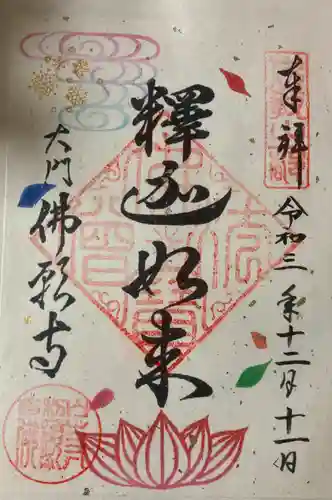 奉拝
令和三年十二月十一日
釋迦如来
大門佛願寺